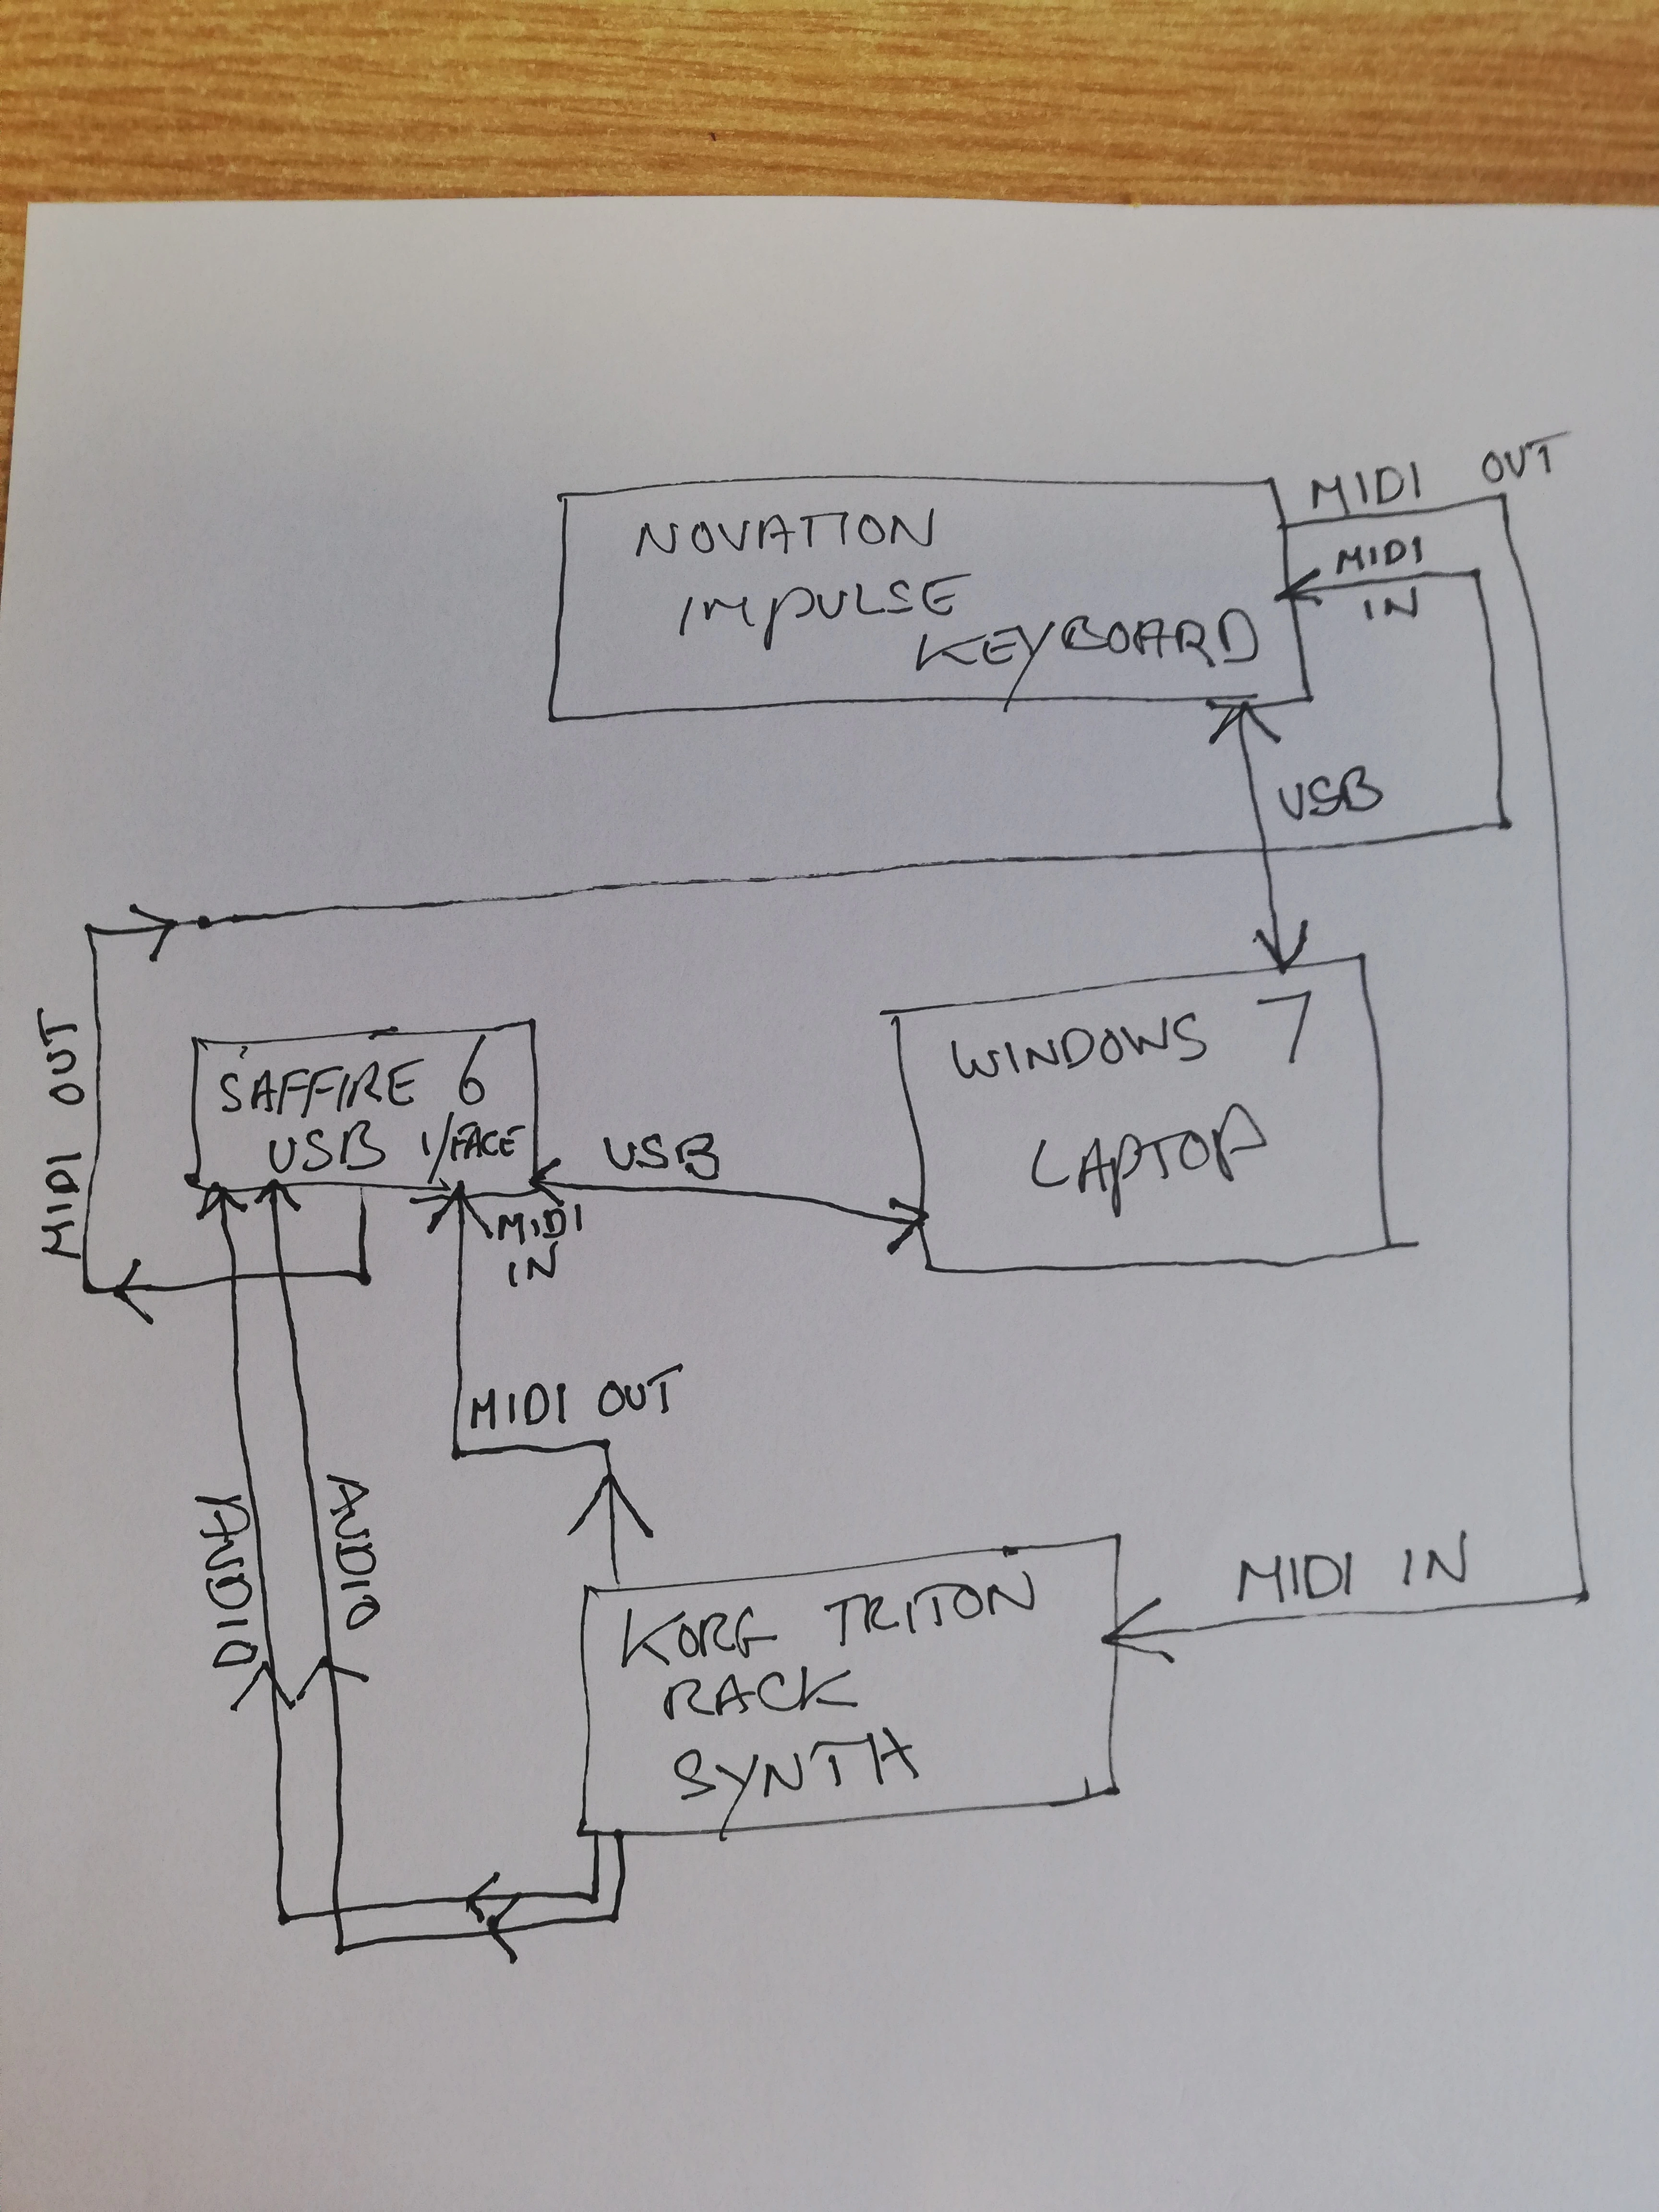 MIDI OUT
NOVATION
IMPULSE
KEYBOARD
MIDI
IN
USB
MIDI OUT
SAFFIRE 6
USB I/FACE
USB
WINDOWS 7
LAPTOP
MIDI
IN
MIDI OUT
AUDIO
AUDIO
MIDI IN
KORG TRITON
RACK
SYNTH